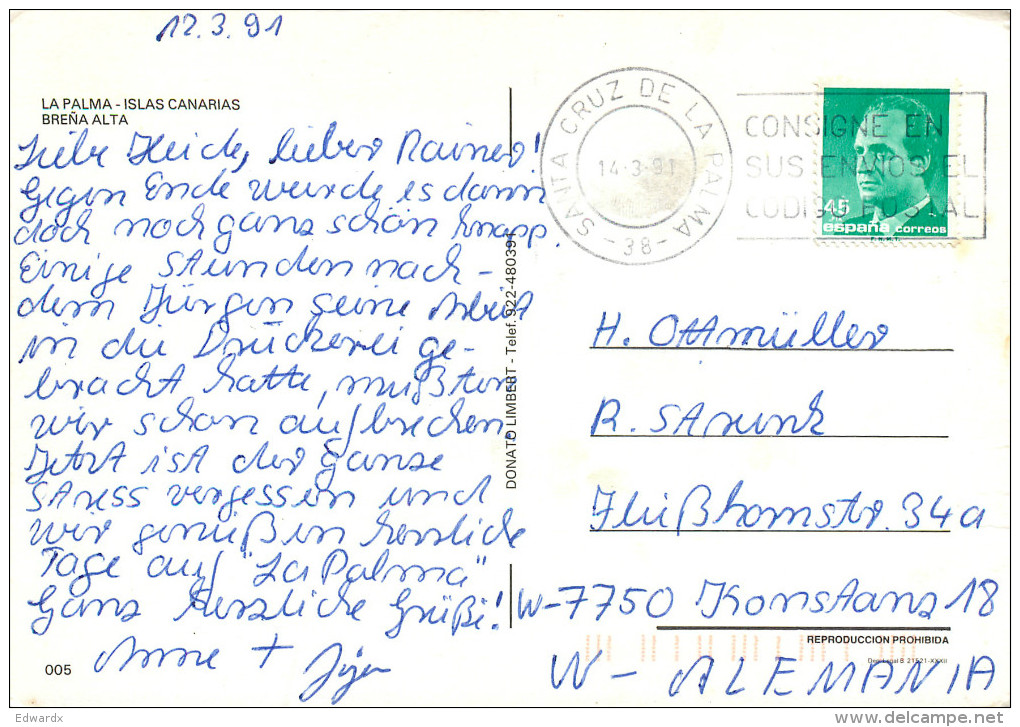 12.3.91
LA PALMA - ISLAS CANARIAS
BREÑA ALTA
Liebe Heide, lieber Rainer!
Gegen Ende wurde es dann
doch noch ganz schön knapp.
Einige Stunden nach-
dem Jürgen seine Arbeit
in die Druckerei ge-
bracht hatte, mußten
wir schon aufbrechen.
Jetzt ist der ganze
Stress vergessen und
wir genießen herrliche
Tage auf "La Palma"
Ganz herzliche Grüße!
Anne +
005
DONATO LIMBERT - Telef. 922-480391
SANTA CRUZ DE LA PALMA
14-3-91
-38-
CONSIGNE EN
SUS ENVIOS EL
CODIGO POSTAL
45
españa correos
F.N.M.T.
H. Ottmüller
R. Strunk
Flußhornstr. 34a
W-7750 Konstanz 18
REPRODUCCION PROHIBIDA
Dep. Legal B 21521-XXXII
W - ALEMANIA
Edwardx
www.delcampe.net